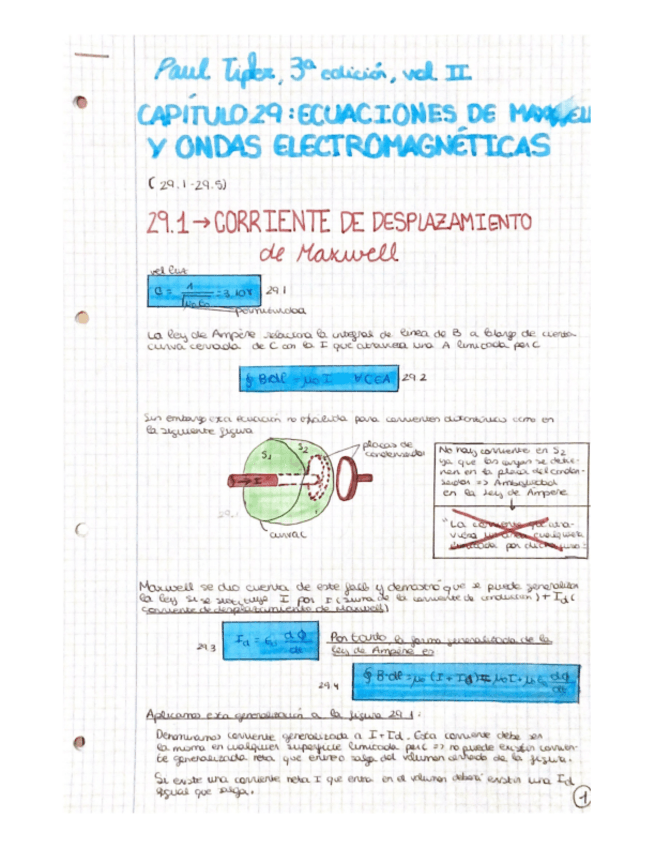 Paul Tipler, 3ª edición, vol II.
CAPÍTULO 29: ECUACIONES DE MAXWELL
Y ONDAS ELECTROMAGNÉTICAS
(29.1-29.5)
29.1→CORRIENTE DE DESPLAZAMIENTO
de Maxwell
vel luz
29.1
permitividad
La ley de Ampère relaciona la integral de línea de B a lo largo de cierta
curva cerrada de C con la I que atraviesa una A limitada por C
∮ B·dl = μ₀ I ∀C∈A 29.2
Sin embargo esta ecuación no es válida para corrientes como en
la siguiente figura
S₁ S₂
placas de
condensador
→I
29.1
curva C
No hay corriente en S₂
ya que las cargas se detie-
nen en la placa del conden-
sador => Ambigüedad
en la Ley de Ampère
"La corriente que atra-
viesa un área cualquiera
limitada por dicha curva"
Maxwell se dio cuenta de este fallo y demostró que se puede generalizar
la ley si se sustituye I por I (suma de la corriente de conducción) + Id (
corriente de desplazamiento de Maxwell)
29.3 Id = ε₀ dϕ/dt
Por tanto, la forma generalizada de la
ley de Ampère es
29.4 ∮ B·dl = μ₀ (I + Id) = μ₀ I + μ₀ ε₀ dϕ/dt
Aplicamos esta generalización a la figura 29.1:
Denominamos corriente generalizada a I+Id. Esta corriente debe ser
la misma en cualquier superficie limitada por C => no puede existir corrien-
te generalizada neta que entre o salga del volumen cerrado de la figura.
Si existe una corriente neta I que entra en el volumen deberá existir una Id
igual que salga.
1